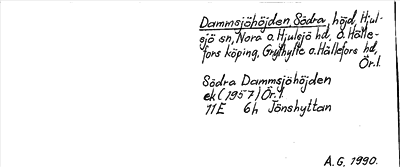 Dammsjöhöjden Södra, höjd, Hjul-
sjö sn, Nora o. Hjulsjö hd, o. Hälle-
fors köping, Grythytte o. Hällefors hd,
Ör. l.
Södra Dammsjöhöjden
ek (1957) Ör. l.
11E 6h Jönshyttan
A.G. 1990.